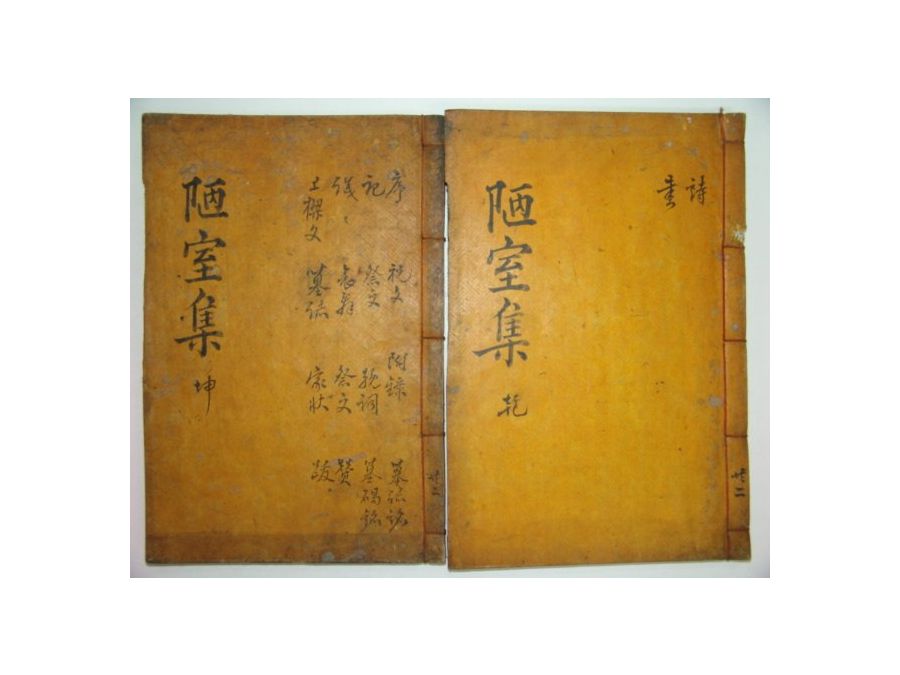 詩
書
陋室集 乾
共二
序
記
上樑文
祝文
祭文
哀辞
墓誌
附錄
輓詞
祭文
家狀
墓誌銘
墓碣銘
贊
跋
陋室集 坤
共二